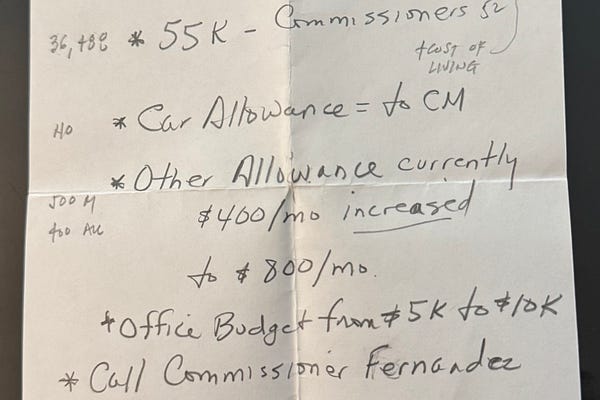 36,488 * 55K - Commissioners 52
+COST OF
LIVING
* Car Allowance = to CM
* Other Allowance currently
500 M
$400/mo increased
400 All
to $800/mo.
* Office Budget from $5K to $10K
* Call Commissioner Fernandez